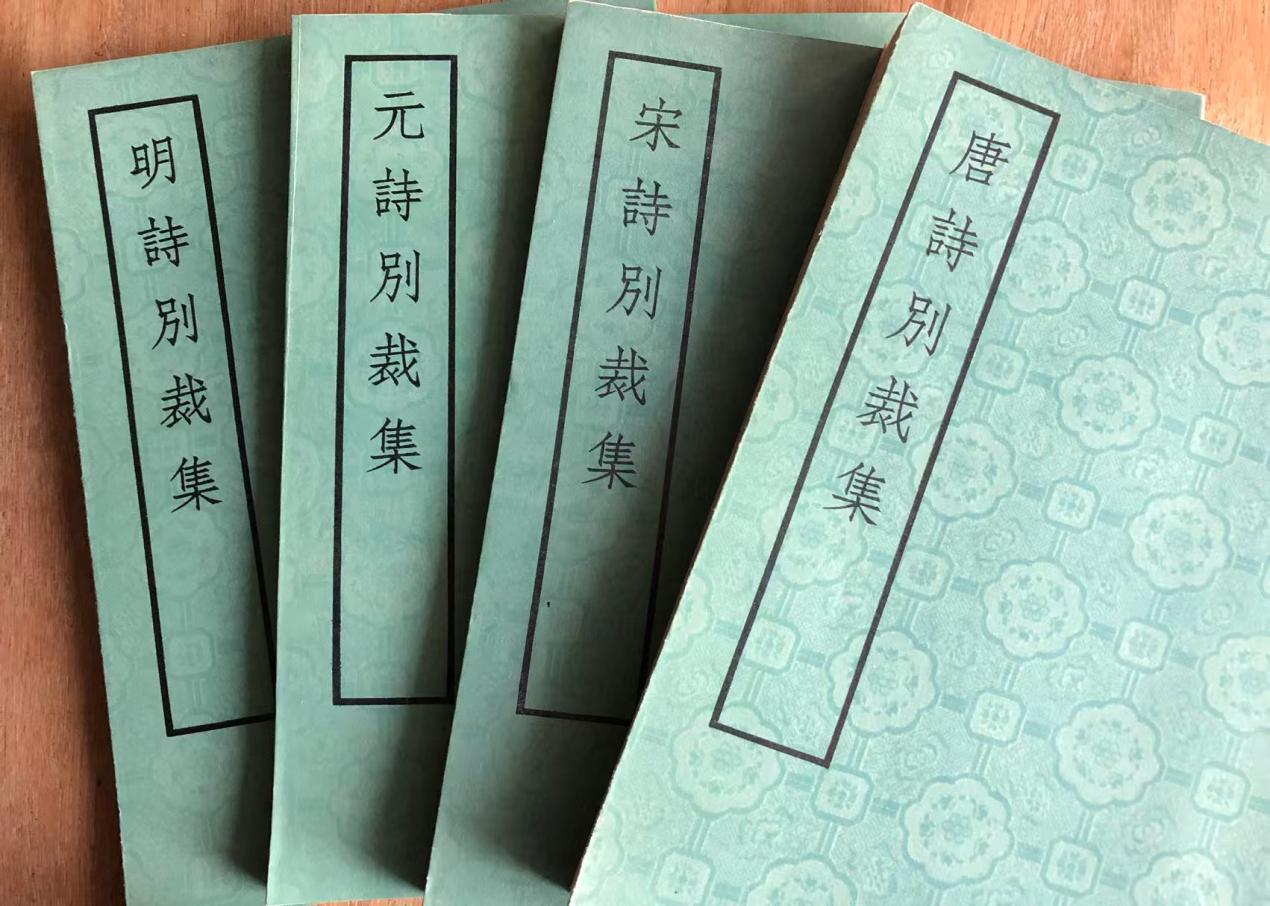 明詩別裁集
元詩別裁集
宋詩別裁集
唐詩別裁集